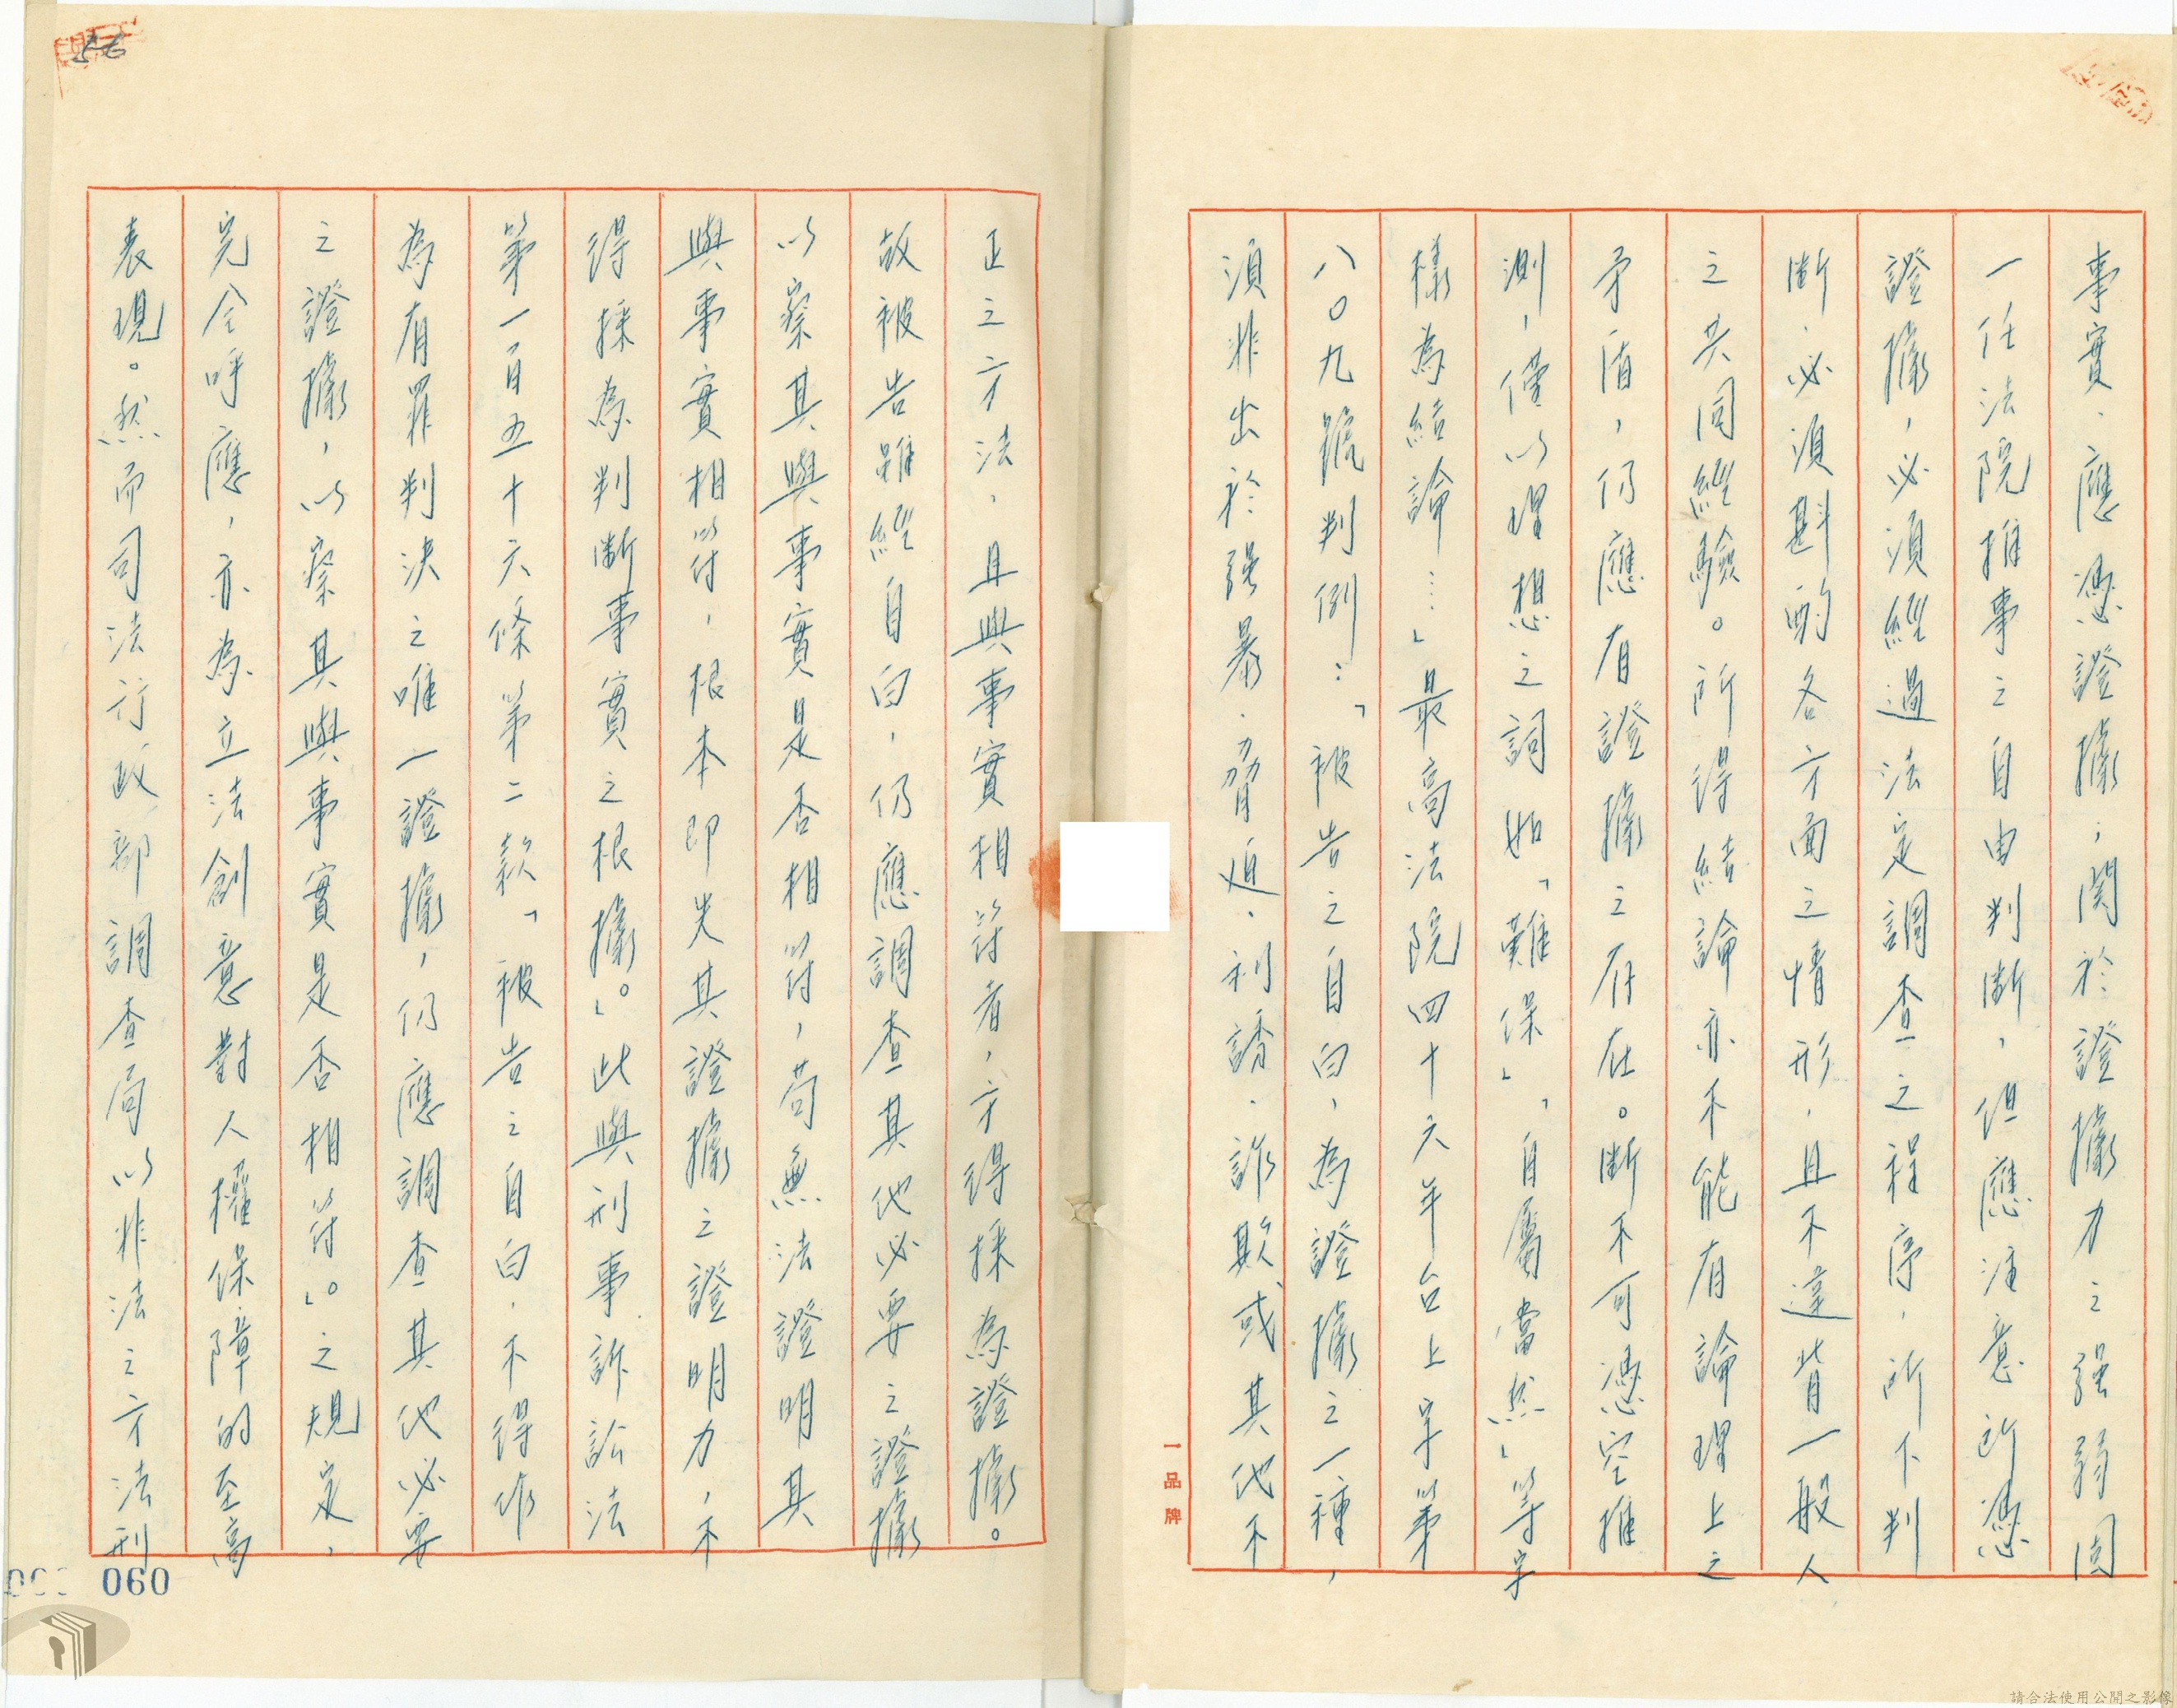 事實、應憑證據；関於證據力之强弱固
一任法院推事之自由判断，但應注意所憑
證據，必須經過法定調查之程序，所下判
断，必須斟酌各方面之情形，且不違背一般人
之共同經驗。所得結論亦不能有論理上之
矛盾，仍應有證據之存在。断不可憑空推
測，僅以理想之詞如「難保」「自屬當然」等字
樣為結論……」最高法院四十六年台上字第
八〇九號判例：「被告之自白，為證據之一種，
須非出於强暴、脅迫、利誘、詐欺或其他不
一品牌
正之方法，且與事實相符者，方得採為證據。
故被告雖經自白，仍應調查其他必要之證據
以察其與事實是否相符，苟無法證明其
與事實相符，根本即失其證據之證明力，不
得採為判断事實之根據。」此與刑事訴訟法
第一百五十六條第二款「被告之自白，不得作
為有罪判決之唯一證據，仍應調查其他必要
之證據，以察其與事實是否相符。」之規定，
完全呼應，亦為立法創意對人權保障的至高
表現。然而司法行政部調查局以非法之方法刑
56
060
請合法使用公開之影像